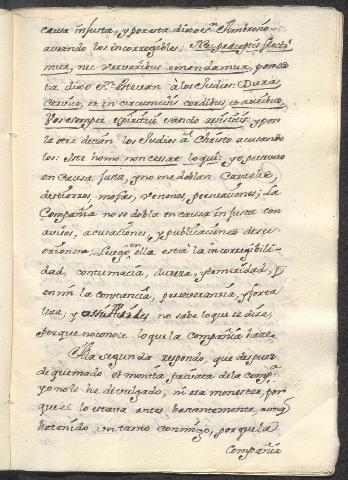 causa injusta, y por esta dixo Sn. Ambrosio
acusando los incorregibles. Nec praeceptis flecti-
mur, nec ververibus emendamur, y por es-
ta dixo Sn. Estevan à los Judios: Dura
cervice, et in circumcisis cordibus, et auribus
Vos semper Spiritui Sancto resistitis: y por
la otra dicen los Judios à Christo acusando
los: iste homo non cessat loqui: yo persevero
en causa justa, y no me doblan carceles,
destierros, mofas, venenos, persuaciones; La
Compañia no se dobla en causa injusta con
avisos, acusaciones, y publicaciones de su
Luego en ella està la incorregibili-
dad, contumacia, dureza, y temeridad, y
en mi la constancia, perseverancia, y forta
leza, y no sabe lo que se dice,
porque no conoce lo que la Compañia haze.
A la segunda respondo, que despues
de quemado el monita privata de la Compa.
yo no le he divulgado, ni era menester, por
que èl lo estava antes bastantemente, aunq
he tenido un tanto conmigo, porque la
Compañia